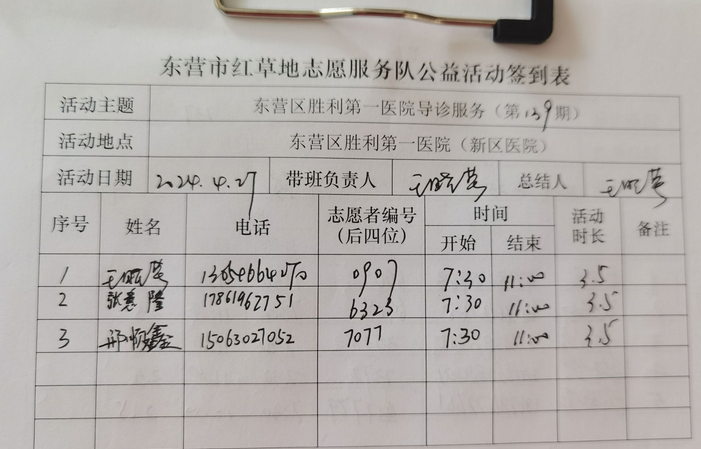 东营市红草地志愿服务队公益活动签到表
活动主题 东营区胜利第一医院导诊服务（第139期）
活动地点 东营区胜利第一医院（新区医院）
活动日期 2024.4.27 带班负责人 总结人
序号 姓名 电话 志愿者编号（后四位） 时间 开始 结束 活动时长 备注
1 0907 7:30 11:00 3.5
2 张 隆 17861962751 6323 7:30 11:00 3.5
3 邢 鑫 15063027052 7077 7:30 11:00 3.5